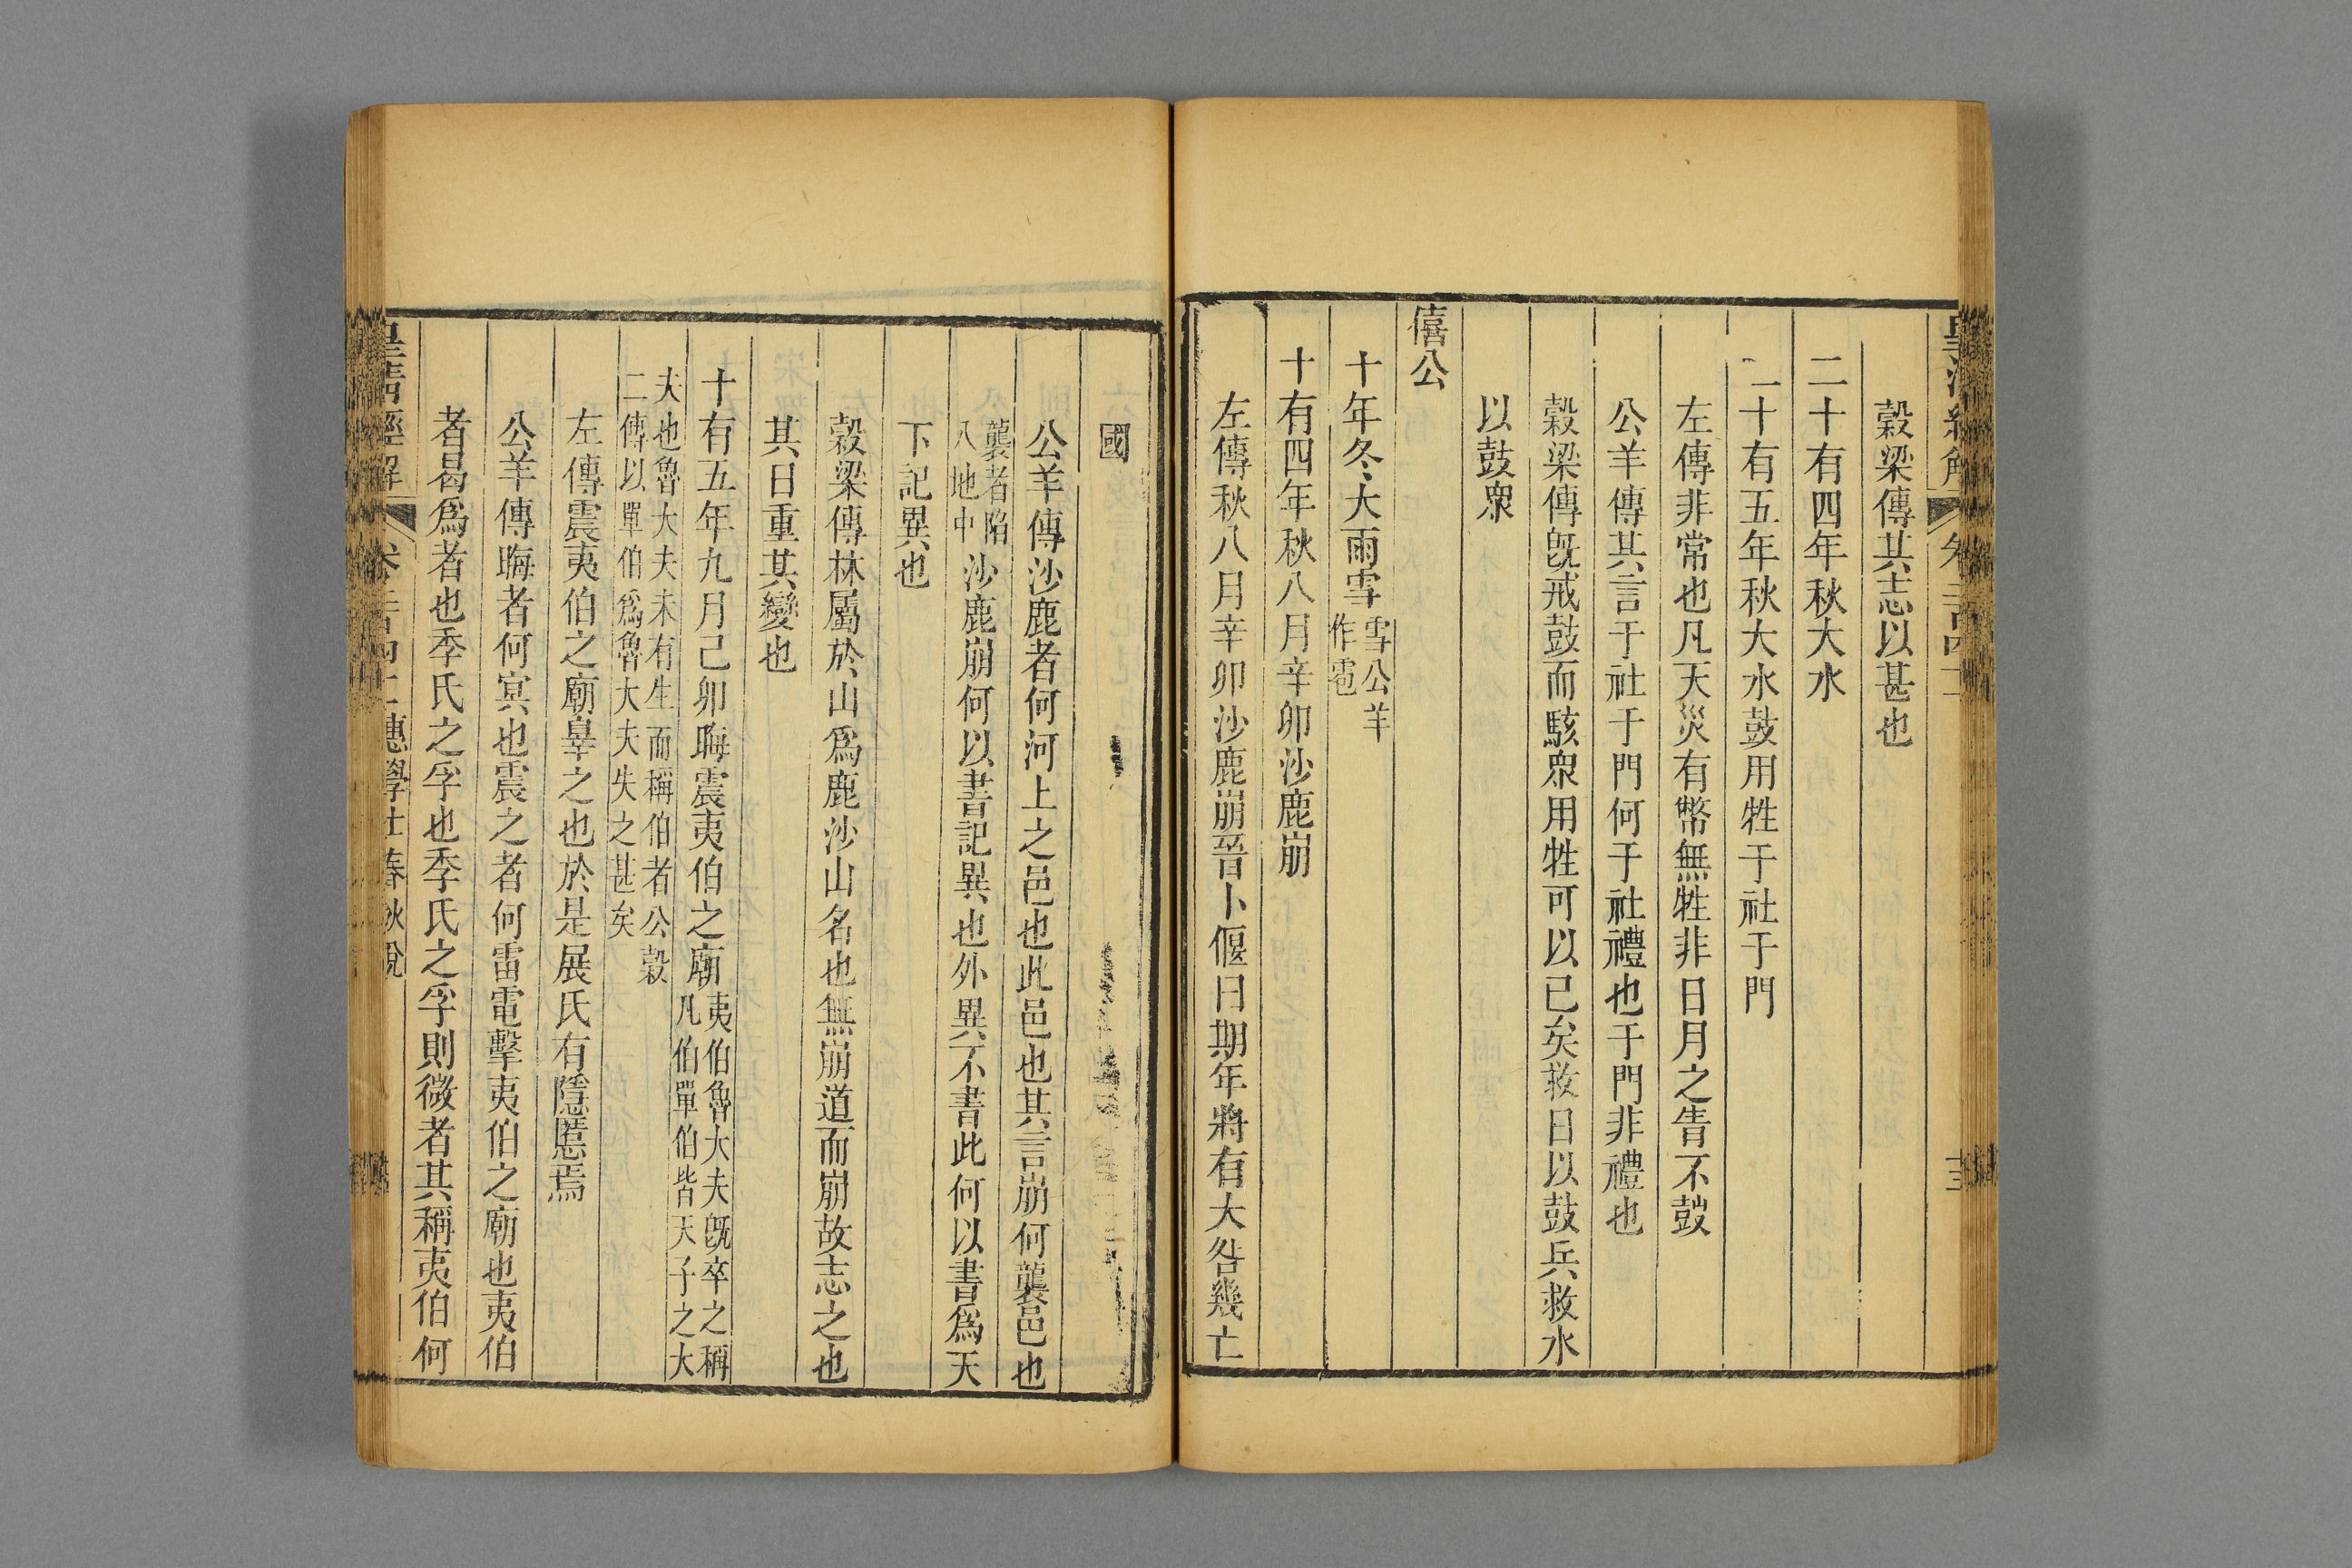 穀梁傳其志以甚也
二十有四年秋大水
二十有五年秋大水鼓用牲于社于門
左傳非常也凡天災有幣無牲非日月之眚不鼓
公羊傳其言于社于門何于社禮也于門非禮也
穀梁傳旣戒鼓而駭衆用牲可以已矣救日以鼓兵救水
以鼓衆
僖公
十年冬大雨雪雪公羊
作雹
十有四年秋八月辛卯沙鹿崩
左傳秋八月辛卯沙鹿崩晉卜偃曰期年將有大咎幾亡
國
公羊傳沙鹿者何河上之邑也此邑也其言崩何襲邑也
襲者陷
入地中沙鹿崩何以書記異也外異不書此何以書爲天
下記異也
穀梁傳林屬於山爲鹿沙山名也無崩道而崩故志之也
其日重其變也
十有五年九月己卯晦震夷伯之廟夷伯魯大夫旣卒之稱
凡伯單伯皆天子之大
夫也魯大夫未有生而稱伯者公穀
二傳以單伯爲魯大夫失之甚矣
左傳震夷伯之廟辠之也於是展氏有隱慝焉
公羊傳晦者何冥也震之者何雷電擊夷伯之廟也夷伯
者曷爲者也季氏之孚也季氏之孚則微者其稱夷伯何
皇清經解